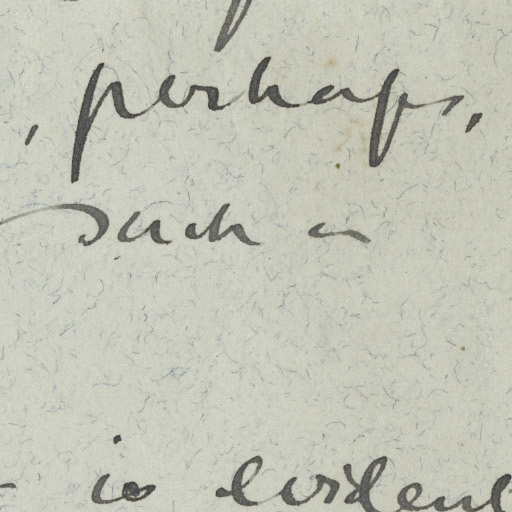 , perhaps,
such a
is evident